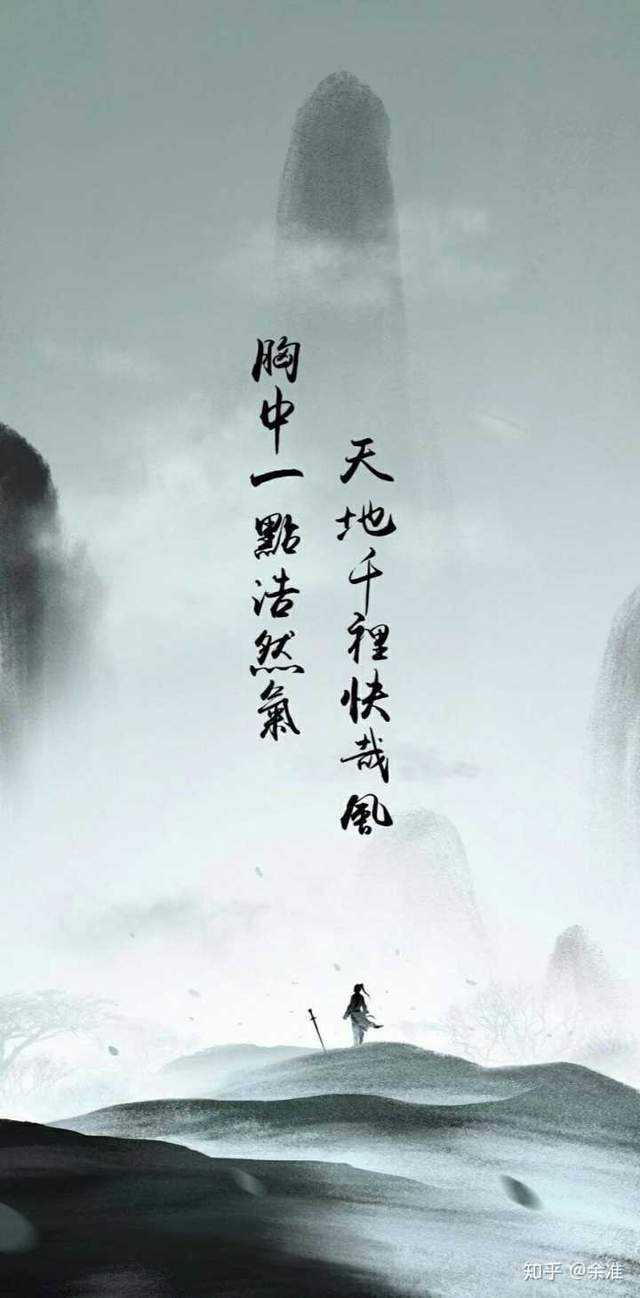 胸中一點浩然氣
天地千裡快哉風
知乎 @余准